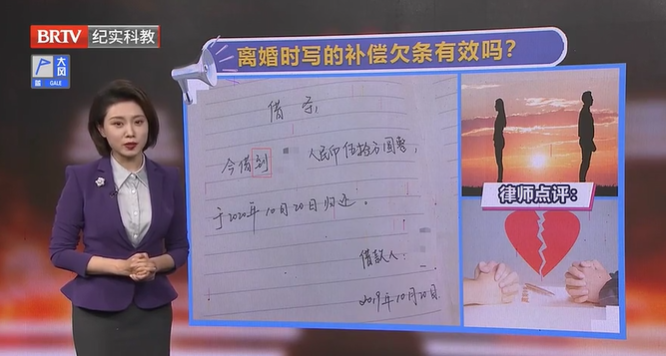 BRTV 纪实科教
大风
蓝 GALE
离婚时写的补偿欠条有效吗？
借条
今借到 人民币伍拾万圆整，
于2020年10月20日归还。
借款人：
2019年10月20日
律师点评：